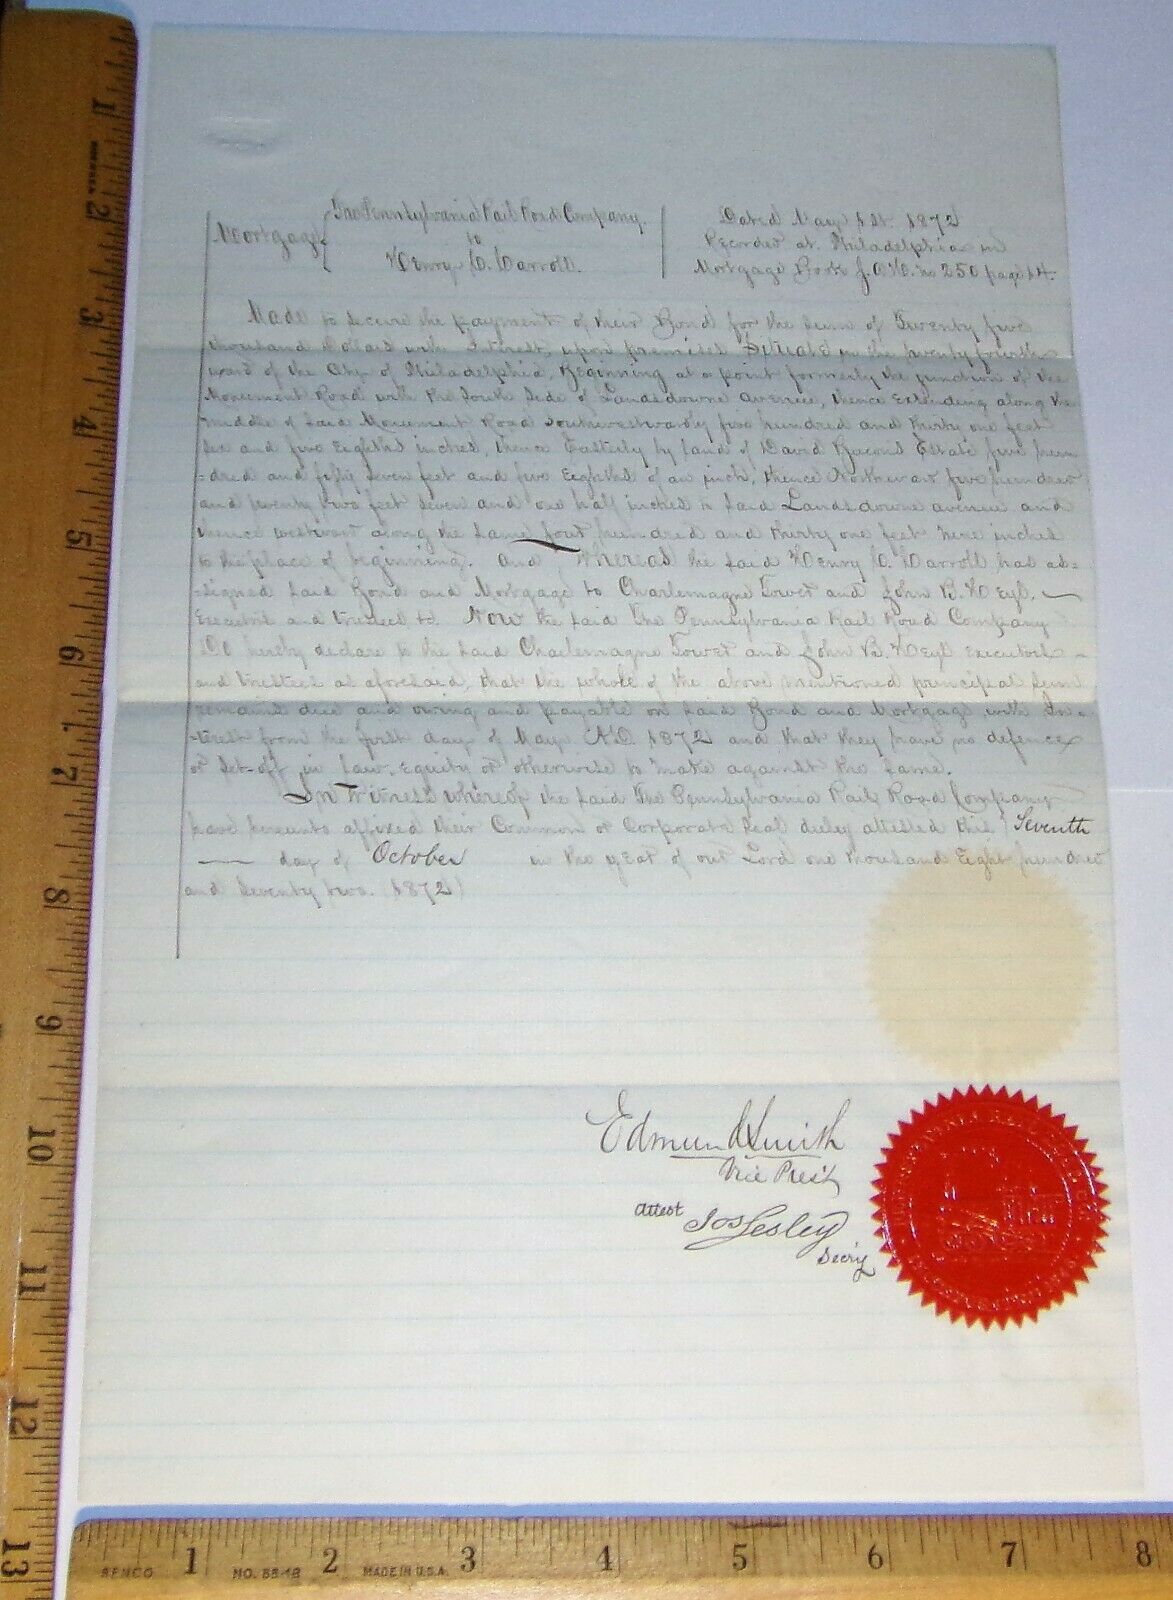 Mortgage { The Pennsylvania Rail Road Company.
to
Henry C. Carroll.
Dated May 1st. 1872
Recorded at Philadelphia in
Mortgage Book J.A.H. no 250 page 14.
Made to secure the payment of their Bond for the sum of Twenty five
thousand Dollars with Interest, upon premises Situate in the twenty fourth
ward of the City of Philadelphia, Beginning at a point formerly the junction of the
Monument Road with the South Side of Landsdowne avenue, thence Extending along the
middle of said Monument Road southwestwardly five hundred and thirty one feet
six and five eighths inches, thence Easterly by land of David Bacons Estate five hun
-dred and fifty seven feet and five Eighths of an inch, thence Northward five hundred
and twenty two feet seven and one half inches to said Landsdowne avenue and
thence westward along the same four hundred and thirty one feet nine inches
to the place of beginning. And whereas the said Henry C. Carroll has as-
-signed said Bond and Mortgage to Charlemagne Tower and John B. Heyl,
Executors and trustees &c. Now the said The Pennsylvania Rail Road Company
Do hereby declare to the said Charlemagne Tower and John B. Heyl executors
and trustees as aforesaid, that the whole of the above mentioned principal sum
remains due and owing and payable on said Bond and Mortgage with In-
-terest from the first day of May A.D. 1872 and that they have no defence
or set-off in law, equity or otherwise to make against the same.
In Witness whereof the said The Pennsylvania Rail Road Company
have hereunto affixed their Common or Corporate seal duly attested this Seventh
day of October in the year of our Lord one thousand Eight hundred
and seventy two. (1872)
Edmund Smith
Vice Prest
Attest Jos Lesley
Secry
1 2 3 4 5 6 7 8 9 10 11 12 13
1 2 3 4 5 6 7 8
NO. 58-18 MADE IN U.S.A.